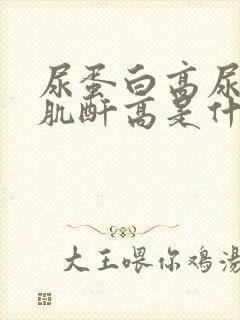 尿蛋白高尿
肌酐高是什
大王喂你鸡汤